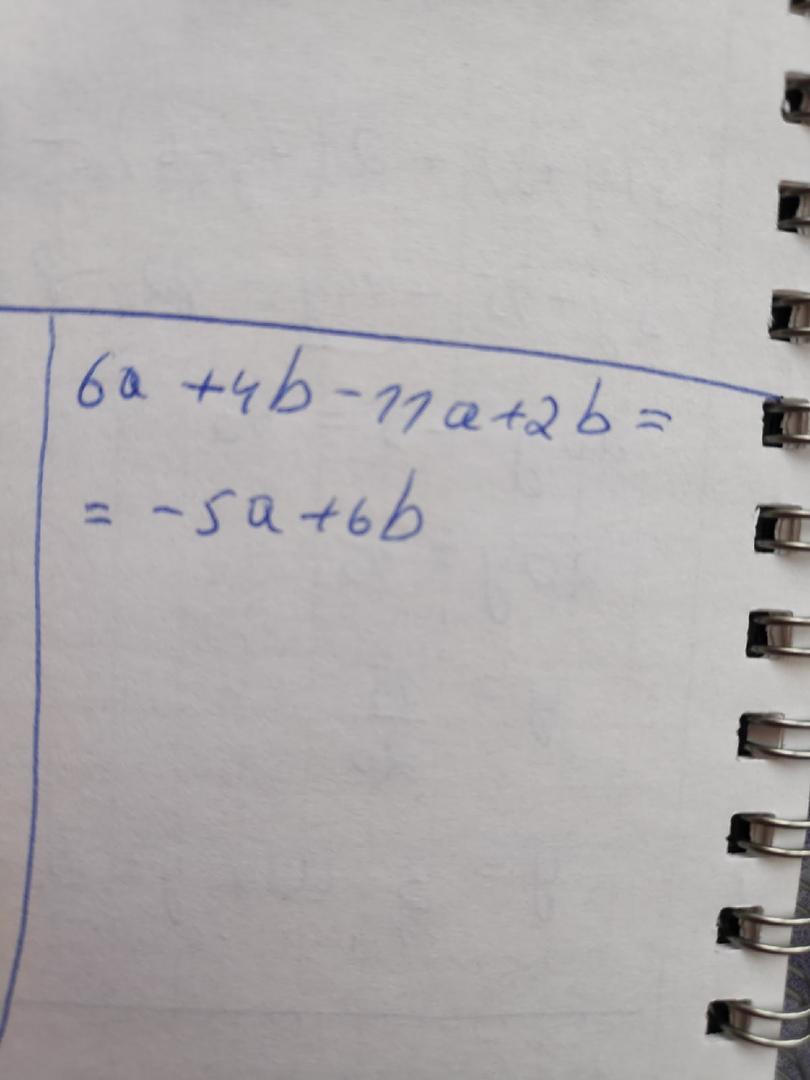 6a +4b -11a+2b =
= -5a+6b